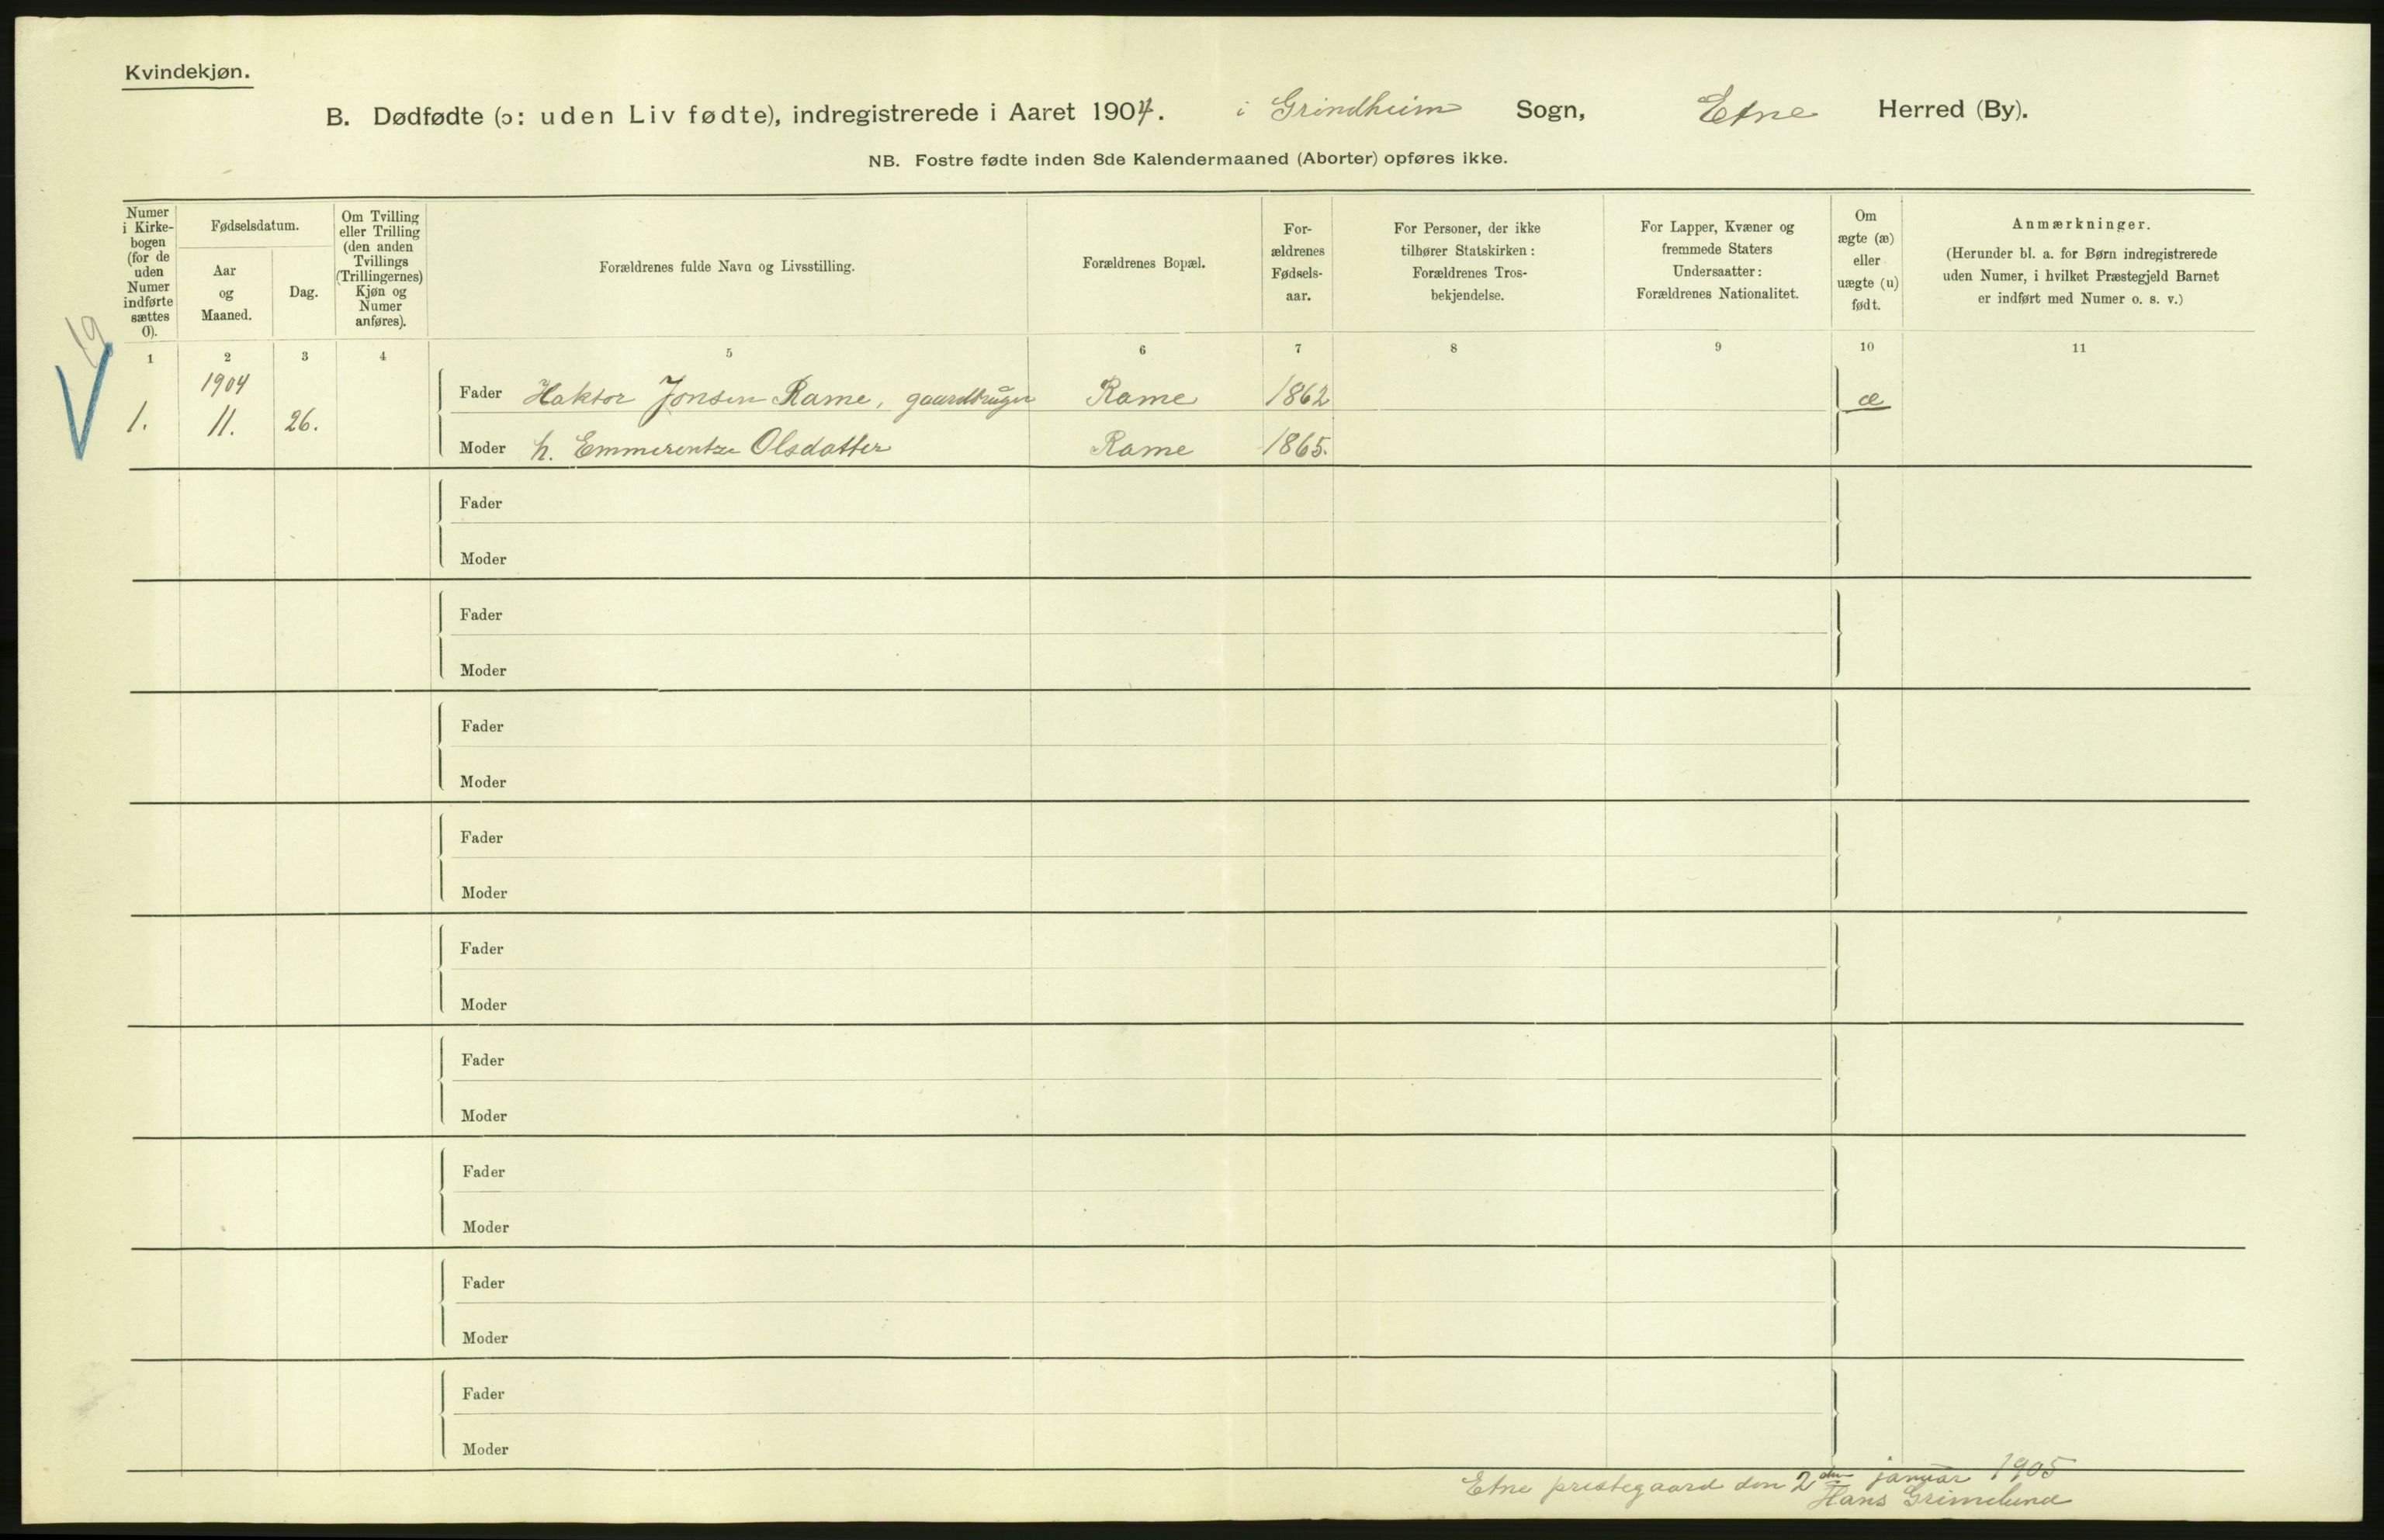 Kvindekjøn.
B. Dødfødte (ɔ: uden Liv fødte), indregistrerede i Aaret 1904. i Grindheim Sogn, Etne Herred (By).
NB. Fostre fødte inden 8de Kalendermaaned (Aborter) opføres ikke.
Numer
i Kirke-
bogen
(for de
uden
Numer
indførte
sættes
0).
Fødselsdatum.
Aar
og
Maaned.
Dag.
Om Tvilling
eller Trilling
(den anden
Tvillings
(Trillingernes)
Kjøn og
Numer
anføres).
Forældrenes fulde Navn og Livsstilling.
Forældrenes Bopæl.
For-
ældrenes
Fødsels-
aar.
For Personer, der ikke
tilhører Statskirken:
Forældrenes Tros-
bekjendelse.
For Lapper, Kvæner og
fremmede Staters
Undersaatter:
Forældrenes Nationalitet.
Om
ægte (æ)
eller
uægte (u)
født.
Anmærkninger.
(Herunder bl. a. for Børn indregistrerede
uden Numer, i hvilket Præstegjeld Barnet
er indført med Numer o. s. v.)
19
1 2 3 4 5 6 7 8 9 10 11
1904
1. 11. 26.
Fader Haktor Jonsen Rame, gaardbruger Rame 1862 æ
Moder h. Emmerentze Olsdatter Rame 1865.
Fader
Moder
Fader
Moder
Fader
Moder
Fader
Moder
Fader
Moder
Fader
Moder
Fader
Moder
Fader
Moder
Fader
Moder
Etne prestegaard den 2den januar 1905
Hans Grimelund